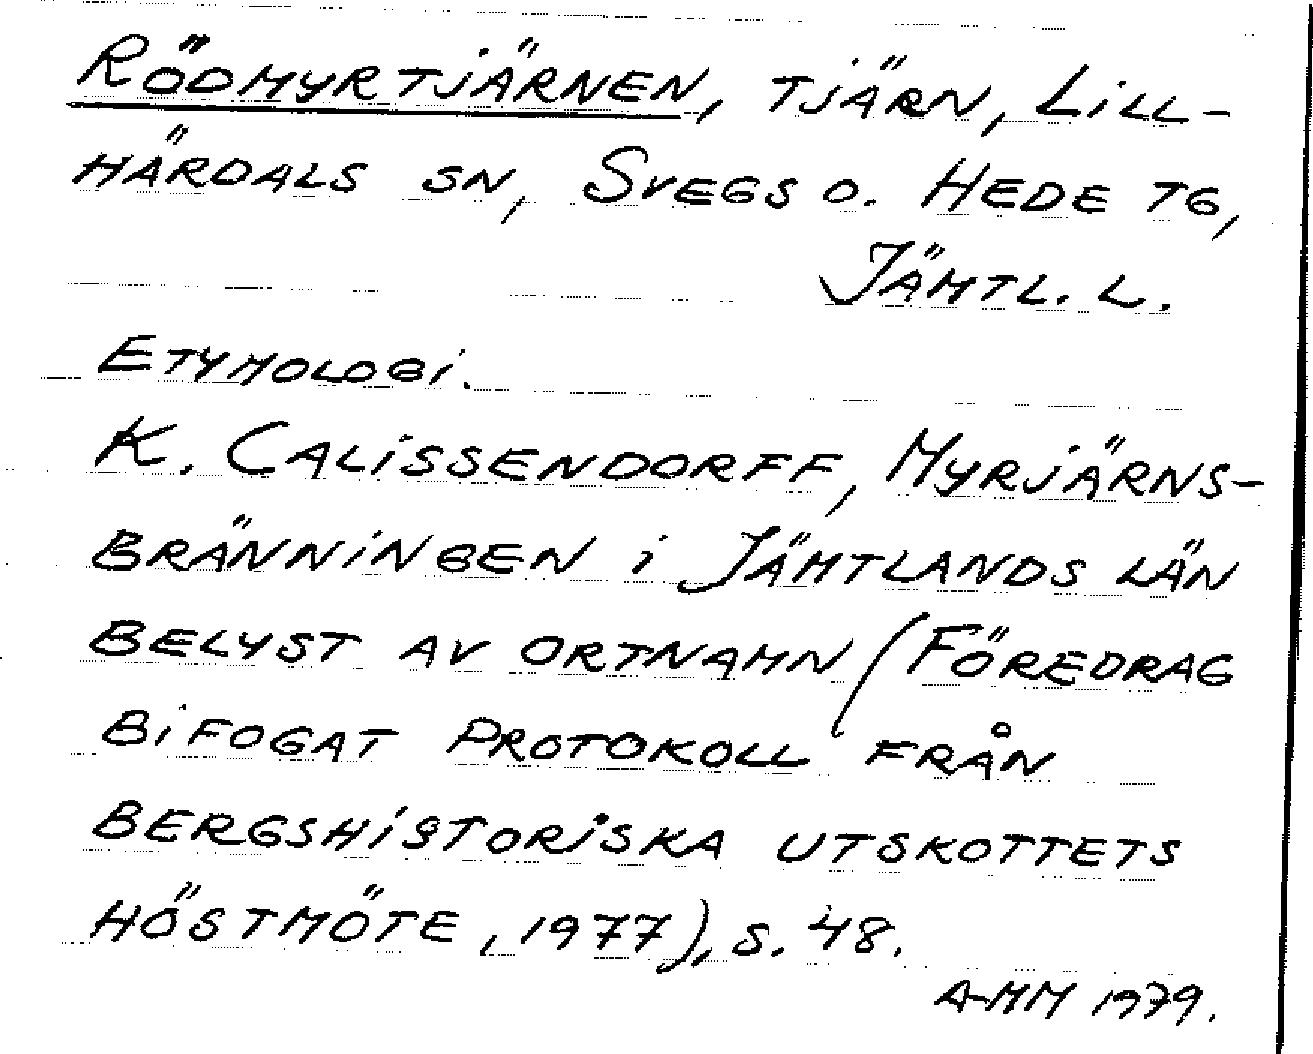 RÖDMYRTJÄRNEN, TJÄRN, LILL-
HÄRDALS SN, SVEGS O. HEDE TG,
JÄMTL. L.
ETYMOLOGI.
K. CALISSENDORFF, MYRJÄRNS-
BRÄNNINGEN I JÄMTLANDS LÄN
BELYST AV ORTNAMN (FÖREDRAG
BIFOGAT PROTOKOLL FRÅN
BERGSHISTORISKA UTSKOTTETS
HÖSTMÖTE, 1977), S. 48.
A-MM 1979.